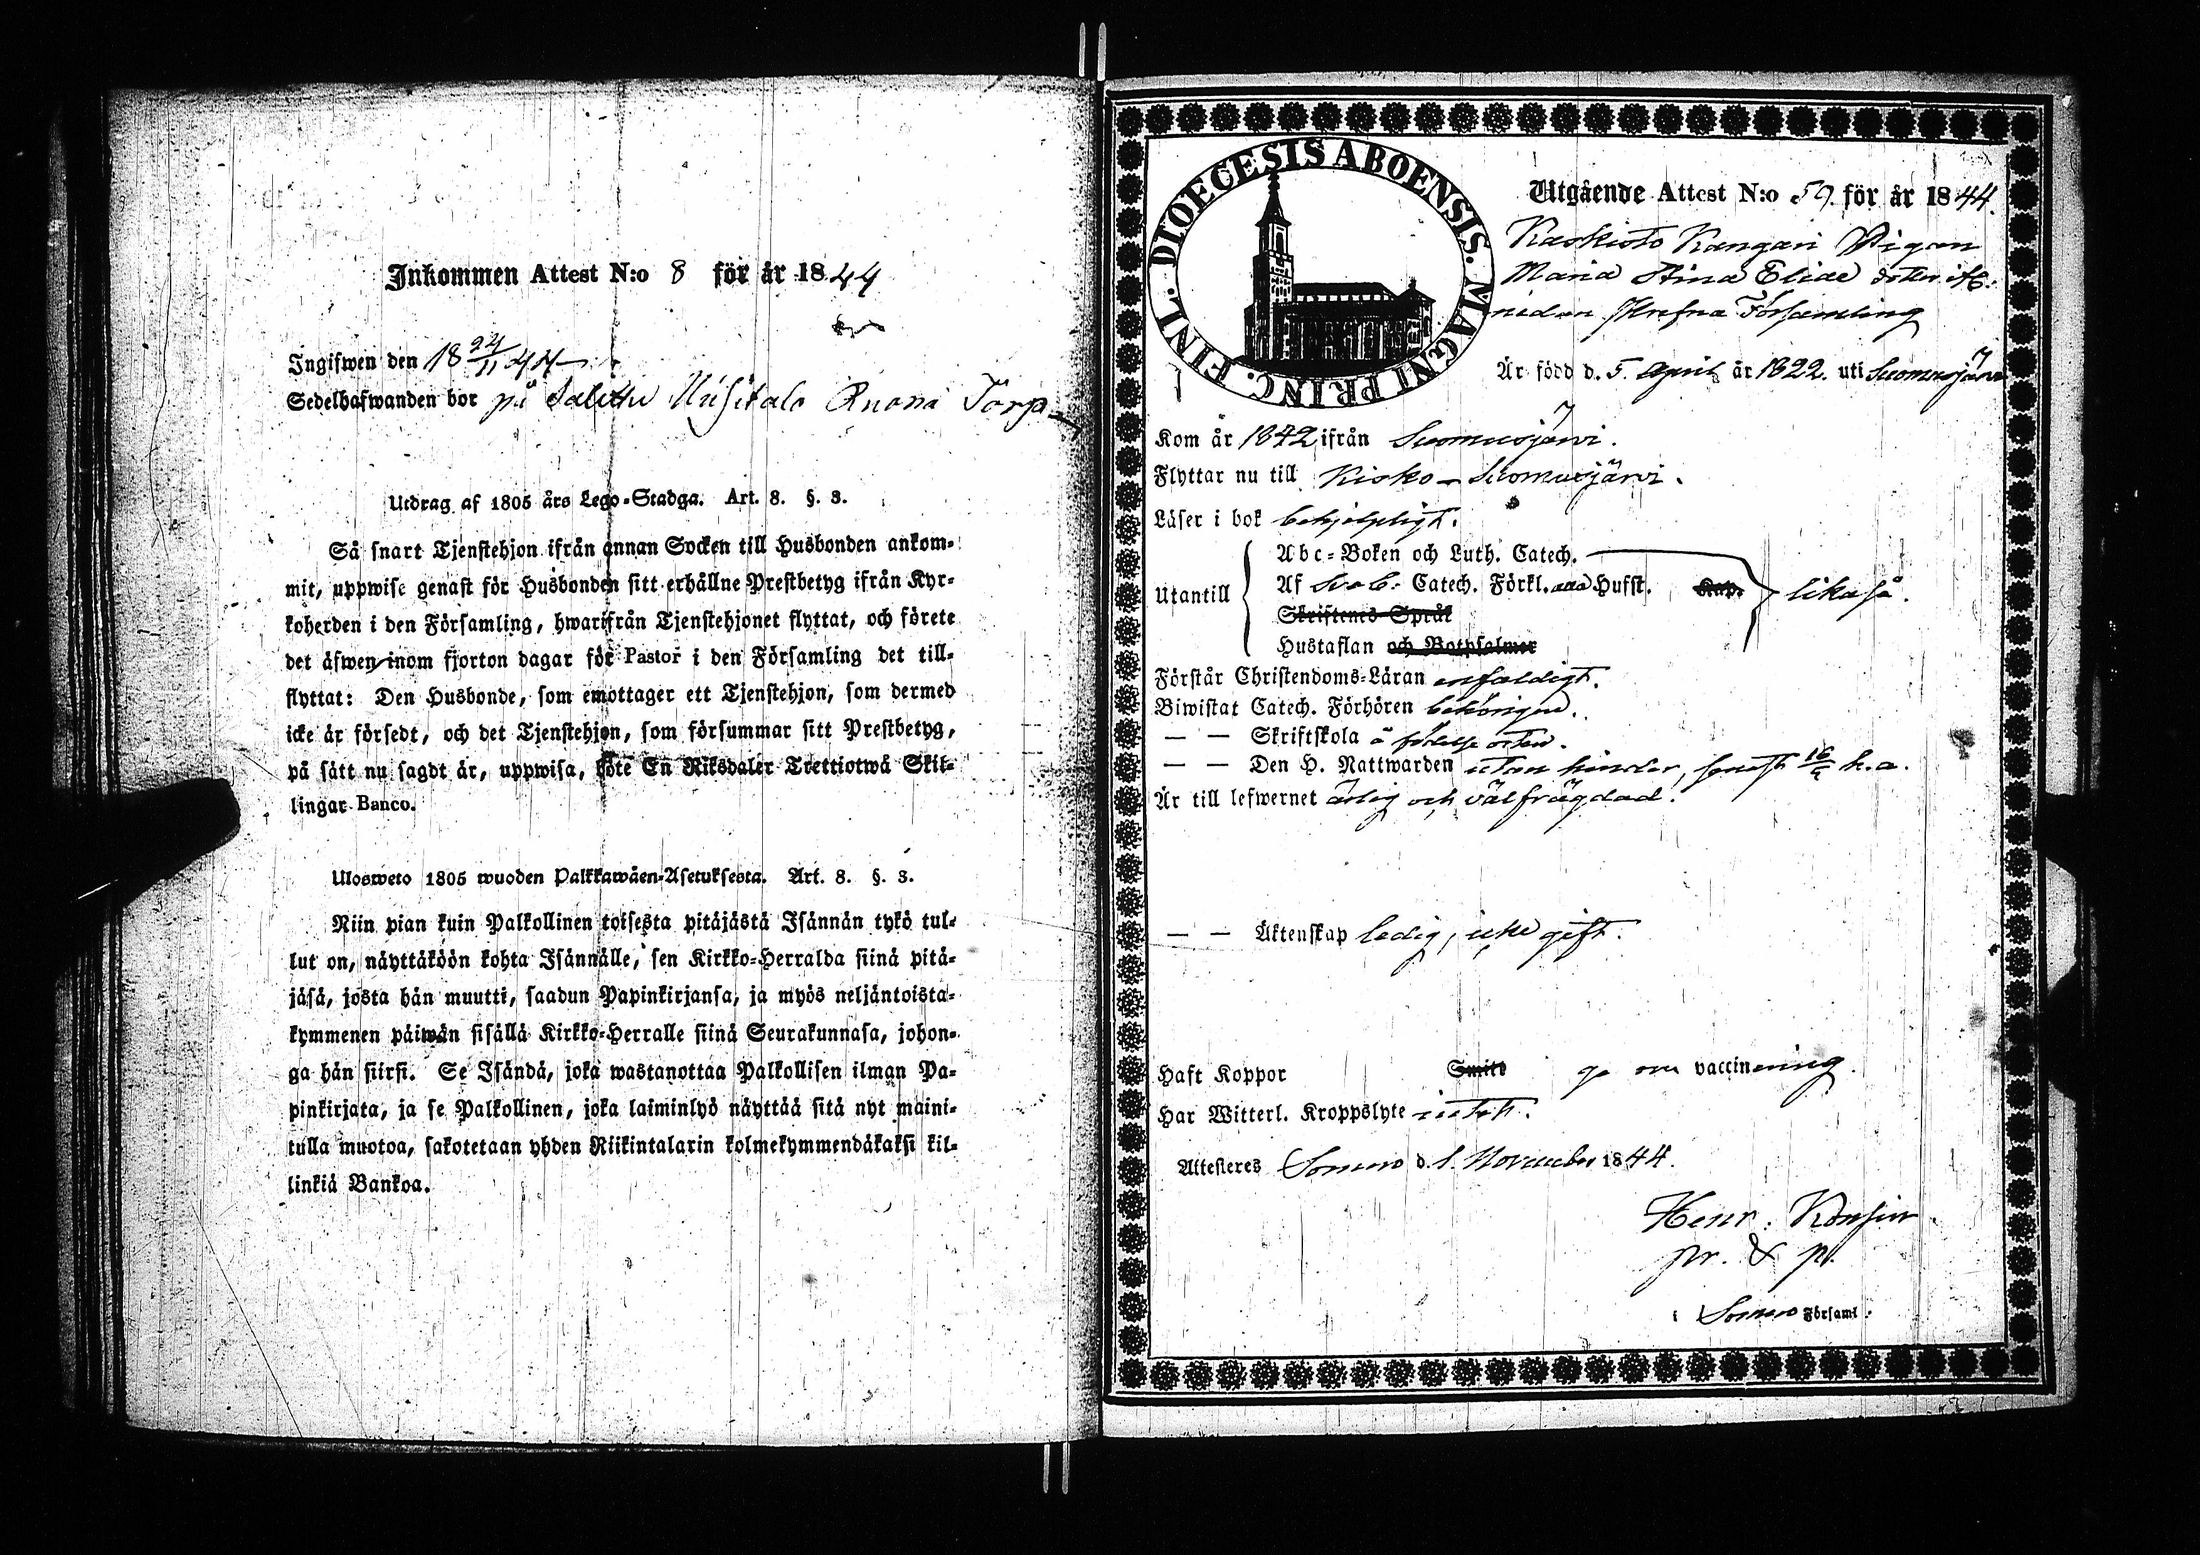 Inkommen Attest N:o 8 för år 1844
Ingifwen den 18 24/11 44
Sedelhafwanden bor på Salittu Uusitalo Ruona Torp
Utdrag af 1805 års Lego-Stadga. Art. 8. §. 3.
Så snart Tjenstehjon ifrån annan Socken till Husbonden ankom-
mit, uppwise genast för Husbonden sitt erhållne Prestbetyg ifrån Kyr-
koherden i den Församling, hwarifrån Tjenstehjonet flyttat, och förete
det äfwen inom fjorton dagar för Pastor i den Församling det till-
flyttat: Den Husbonde, som emottager ett Tjenstehjon, som dermed
icke är försedt, och det Tjenstehjon, som försummar sitt Prestbetyg,
på sätt nu sagdt är, uppwisa, böte En Riksdaler Trettiotwå Skil-
lingar Banco.
Ulosweto 1805 wuoden Palkkawäen-Asetuksesta. Art. 8. §. 3.
Niin pian kuin Palkollinen toisesta pitäjästä Isännän tykö tul-
lut on, näyttäköön kohta Isännälle, sen Kirkko-Herralda siinä pitä-
jäsä, josta hän muutti, saadun Papinkirjansa, ja myös neljäntoista-
kymmenen päiwän sisällä Kirkko-Herralle siinä Seurakunnasa, johon-
ga hän siirsi. Se Isändä, joka wastanottaa Palkollisen ilman Pa-
pinkirjata, ja se Palkollinen, joka laiminlyö näyttää sitä nyt maini-
tulla muotoa, sakotetaan yhden Riikintalarin kolmekymmendäkaksi kil-
linkiä Bankoa.
DIOECESIS ABOENSIS. MAGNI PRINC. FINL.
Utgående Attest N:o 59 för år 1844.
Kaskisto Kangari Pigan
Maria Stina Elias dotter
nedan Församling
Är född d. 5 April år 1822. uti Suomusjärvi
Kom år 1842 ifrån Suomusjärvi.
Flyttar nu till Kisko - Suomusjärvi.
Läser i bok behjelpligt.
Utantill
Abc-Boken och Luth. Catech.
Af Sveb: Catech. Förkl. Hufst. Kap. likaså.
Skriftenes Språk
Hustaflan och Botpsalmer
Förstår Christendoms-Läran enfaldigt.
Biwistat Catech. Förhören behörigen.
— — Skriftskola å födelse orten.
— — Den H. Nattwarden utan hinder, senast 16 h.a.
Är till lefwernet ärlig och välfrägdad.
— — Äktenskap ledig, icke gift.
Haft Koppor Smitt ge om vaccinering.
Har Witterl. Kroppslyte intet.
Attesteres Somero d. 1. November 1844.
Henr. Konsin
pr. & p.
i Somero Församl: